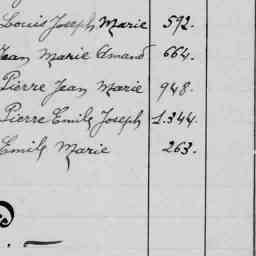 Louis Joseph Marie 592.
Jean Marie Amand 664.
Pierre Jean Marie 948.
Pierre Emile Joseph 1.344.
Emile Marie 263.